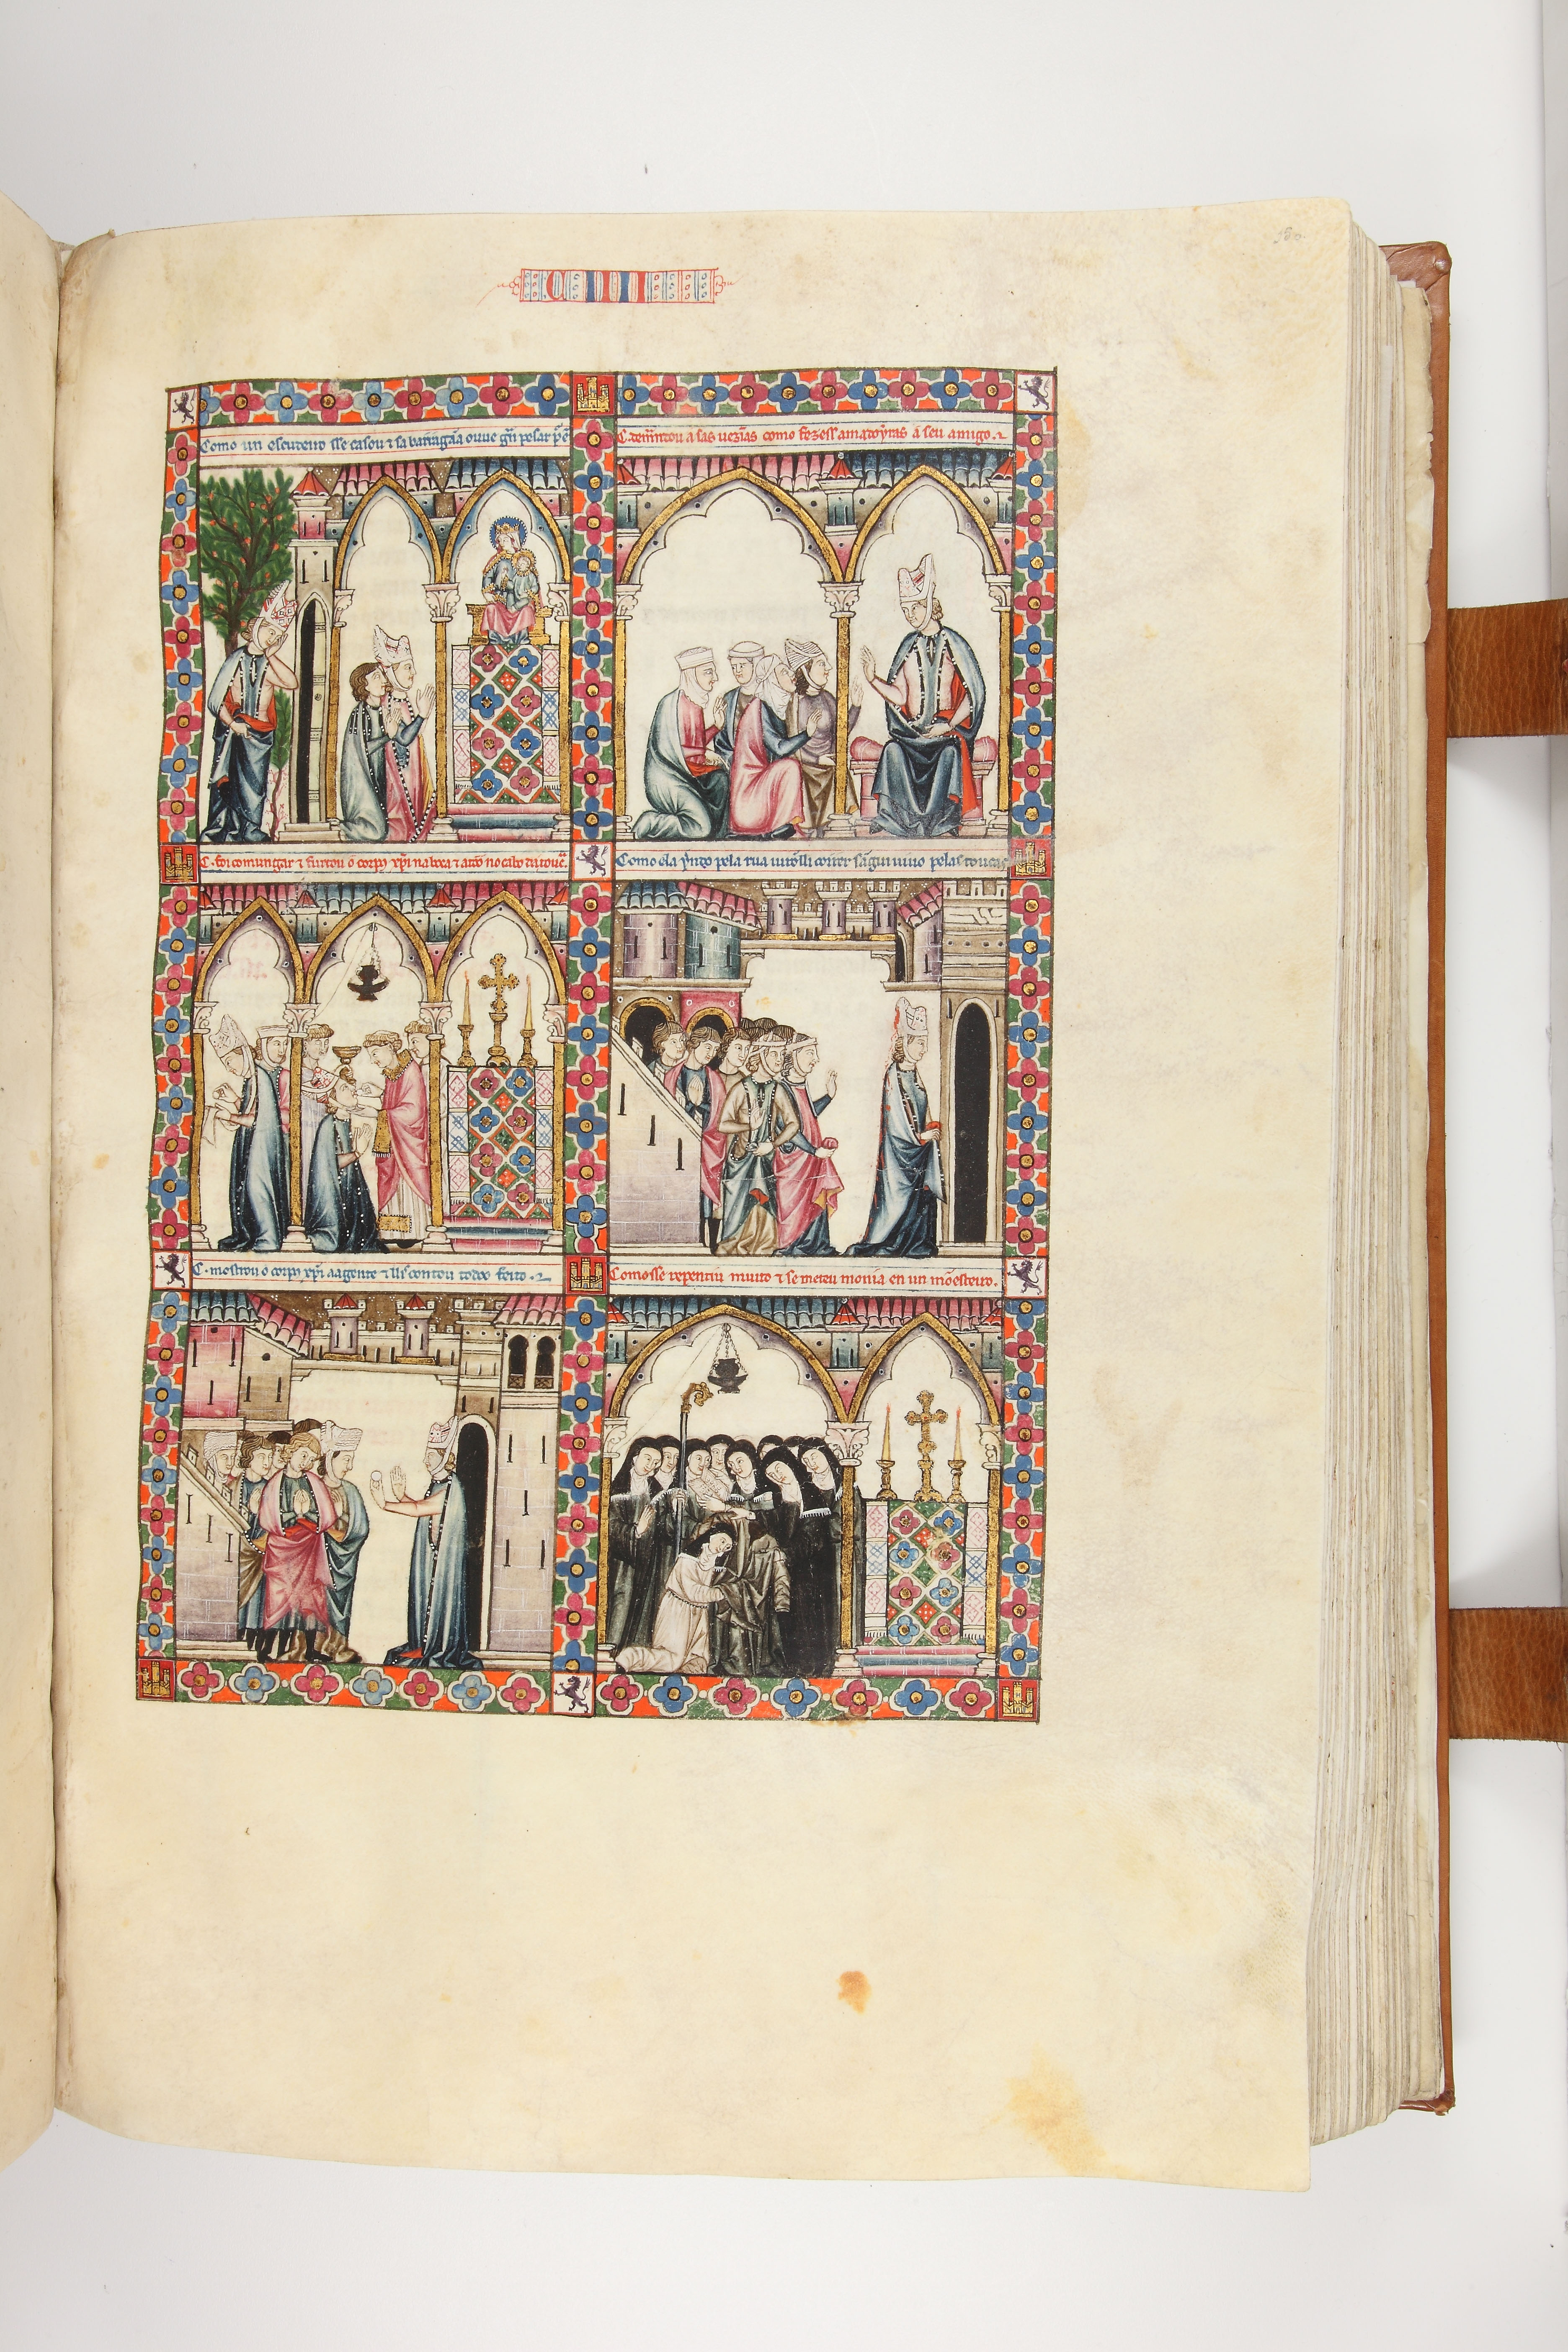 CIIII
Como un escudeiro sse casou ⁊ sa barragãa ouue grã pesar
C. demãdou a sas uezỹas como fezess amadoyras a seu amigo. ⁊
C. foi comungar ⁊ furtou o corpus xpi na boca ⁊ atou no cabo da touca.
Como ela yndo pela rua uirõlli correr sãgui uiuo pelas toucas
C. mostrou o corpus xpi aa gente ⁊ lles contou todo o feito. ⁊
Como sse repentiu muito ⁊ se meteu monja en un mõesteiro.